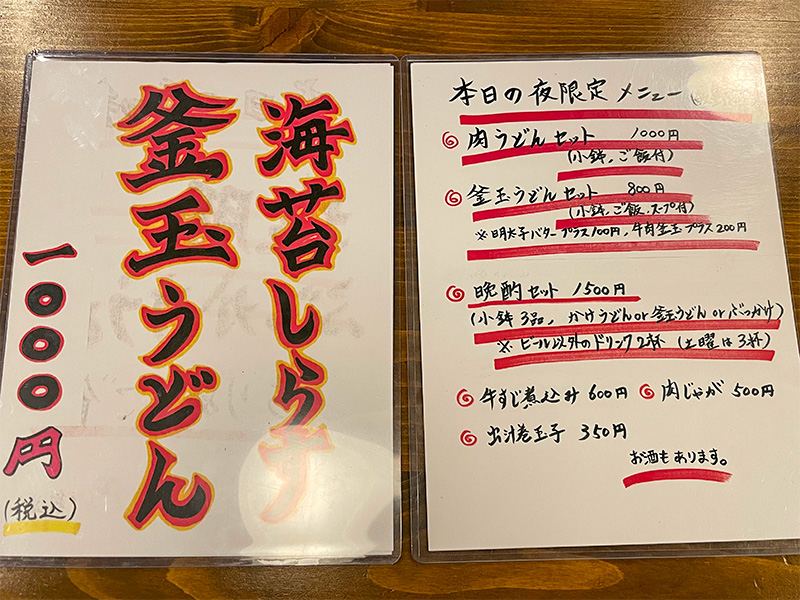 海苔しらす
釜玉うどん
一〇〇〇円
(税込)
本日の夜限定メニュー
肉うどんセット 1000円
(小鉢、ご飯付)
釜玉うどんセット 800円
(小鉢、ご飯、スープ付)
※明太子バタープラス100円、牛肉釜玉プラス200円
晩酌セット 1500円
(小鉢3品、かけうどんor釜玉うどんorぶっかけ)
※ビール以外のドリンク2杯(土曜は3杯)
牛すじ煮込み 600円 肉じゃが 500円
出汁巻玉子 350円
お酒もあります。